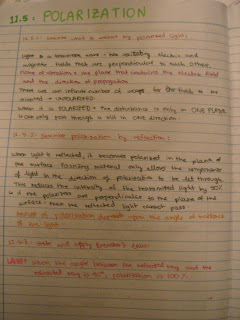 11.5: POLARIZATION
11.5.1: Describe what is meant by polarised light:
Light is a transverse wave - has oscillating electric and
magnetic fields that are perpendicular to each other.
Plane of vibration = the plane that contains the electric field
and the direction of propagation
There are an infinite number of ways for the fields to be
oriented → UNPOLARISED
When it is POLARISED = the disturbance is only in ONE PLANE
It can only pass through a slit in one direction
11.5.2: Describe polarisation by reflection:
When light is reflected, it becomes polarised in the plane of
the surface. Polarising material only allows the components
of light in the direction of polarisation to be let through
This reduces the intensity of the transmitted light by 50%
If the polarisers are perpendicular to the plane of the
surface: then the reflected light cannot pass
Amount of polarisation depends upon the angle of incidence
of the light
11.5.3: State and apply Brewster's Law:
LAW: When the angle between the reflected ray and the
refracted ray is 90°, polarisation is 100%